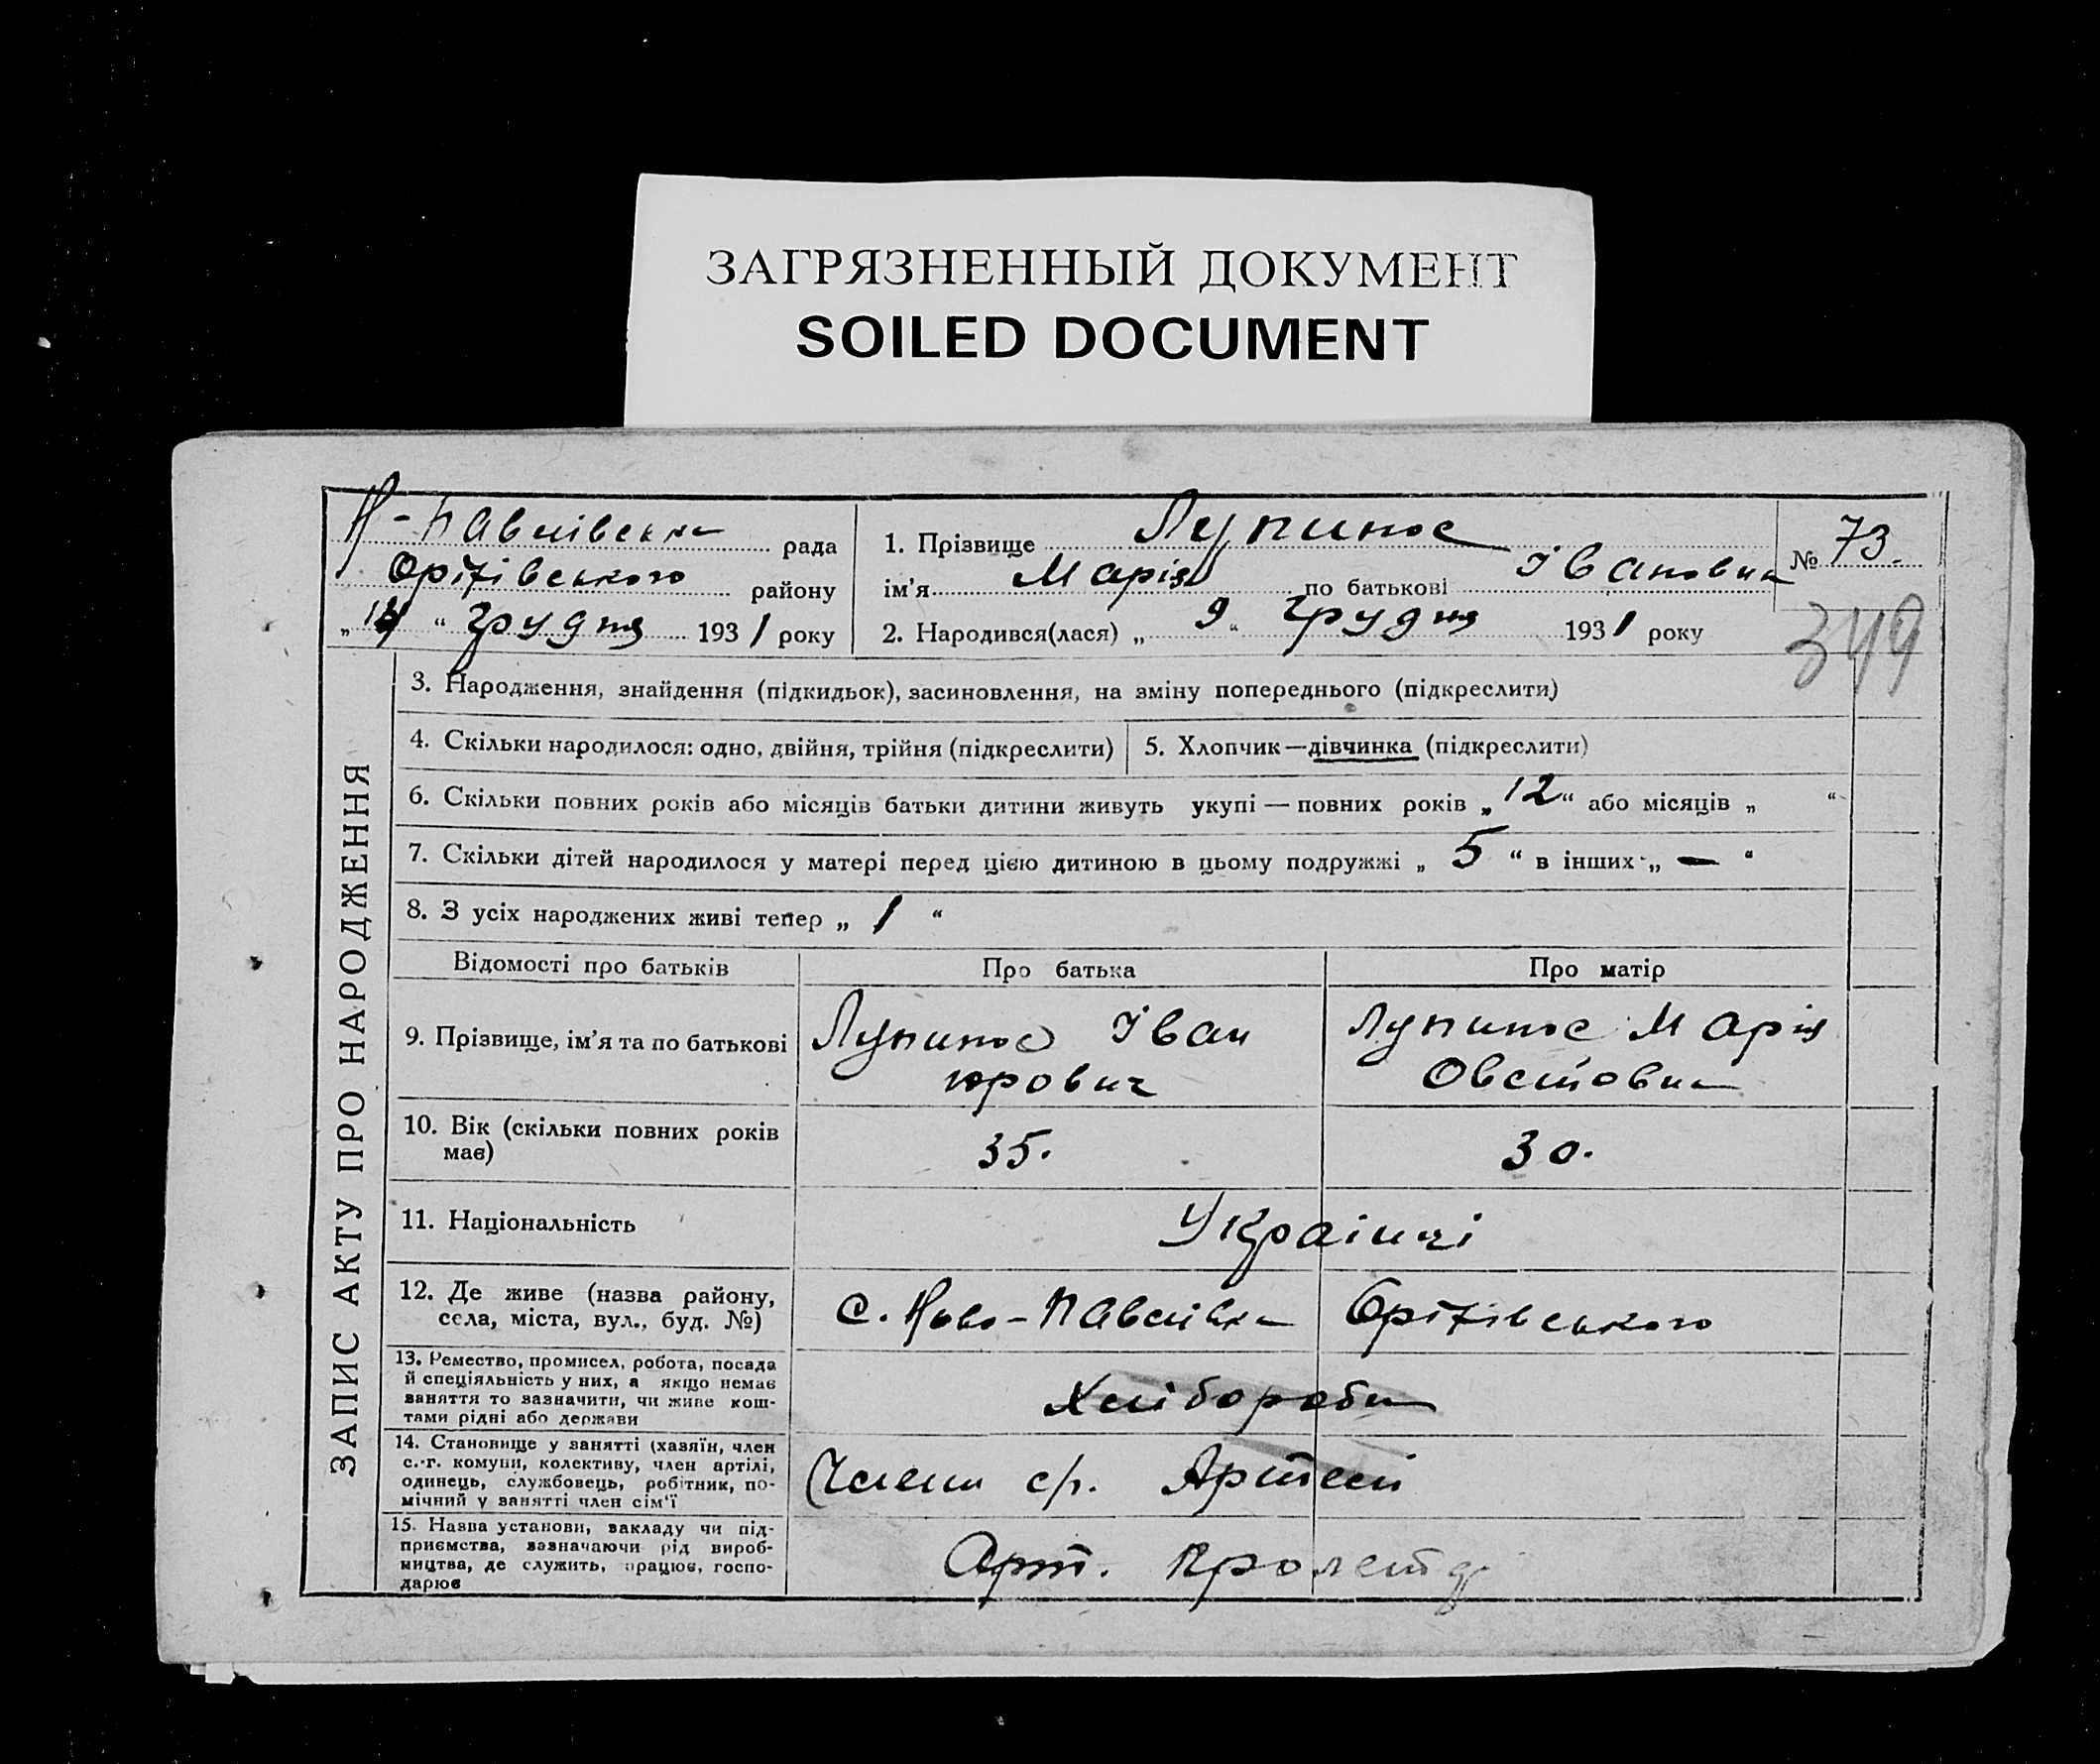 ЗАГРЯЗНЕННЫЙ ДОКУМЕНТ
SOILED DOCUMENT
Н-Павлівська рада
Оріхівського району
„ “ грудня 1931 року
1. Прізвище Лупинос
ім’я Марія по батькові Івановна
№ 73.
2. Народився(лася) „ 9 “ грудня 1931 року
349
ЗАПИС АКТУ ПРО НАРОДЖЕННЯ
3. Народження, знайдення (підкидьок), засиновлення, на зміну попереднього (підкреслити)
4. Скільки народилося: одно, двійня, трійня (підкреслити)
5. Хлопчик—дівчинка (підкреслити)
6. Скільки повних років або місяців батьки дитини живуть укупі — повних років „ 12 “ або місяців „ “
7. Скільки дітей народилося у матері перед цією дитиною в цьому подружжі „ 5 “ в інших „ — “
8. З усіх народжених живі тепер „ 1 “
Відомості про батьків
Про батька
Про матір
9. Прізвище, ім’я та по батькові
Лупинос Іван
юрович
Лупинос Марія
Овстовна
10. Вік (скільки повних років
має)
35.
30.
11. Національність
Украінці
12. Де живе (назва району,
села, міста, вул., буд. №)
с. Ново-Павлівка Оріхівського
13. Ремество, промисел, робота, посада
й спеціяльність у них, а якщо немає
заняття то зазначити, чи живе кош-
тами рідні або держави
Хлібороби
14. Становище у занятті (хазяїн, член
с.-г. комуни, колективу, член артілі,
одинець, службовець, робітник, по-
мічний у занятті член сім’ї
Члени с/г. Артелі
15. Назва установи, закладу чи під-
приємства, зазначаючи рід вироб-
ництва, де служить, працює, госпо-
дарює
Арт.